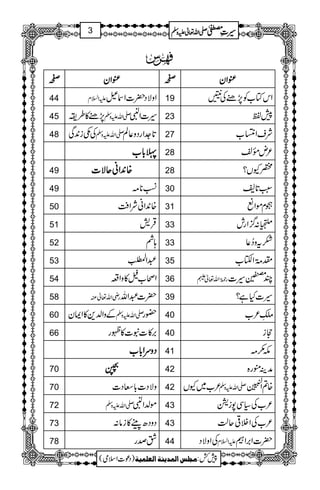 سیرتِ مصطفیٰ صلی اللہ تعالیٰ علیہ وسلم
3
فہرس
عنوان صفحہ
اس کتاب کو پڑھنے کی نیتیں 19
پیش لفظ 23
شرفِ انتساب 27
عرض مؤلف 28
مختصر کیوں؟ 28
سبب تالیف 30
ہجوم موانع 31
ملتجیانہ گزارش 33
شکریہ و دُعا 33
مقدمۃ الکتاب 35
چند مصنفین سیرت رحمہم اللہ تعالیٰ علیہم 36
سیرت کیا ہے؟ 39
ملک عرب 40
حجاز 40
مکہ مکرمہ 41
مدینہ منورہ 42
خاتم النبیین صلی اللہ تعالیٰ علیہ وسلم عرب میں کیوں 42
عرب کی سیاسی پوزیشن 43
عرب کی اخلاقی حالت 43
حضرت ابراہیم علیہ السلام کی اولاد 44
عنوان صفحہ
اولاد حضرت اسمٰعیل علیہ السلام 44
سیرۃ النبی صلی اللہ تعالیٰ علیہ وسلم پڑھنے کا طریقہ 45
تاجدار دو عالم صلی اللہ تعالیٰ علیہ وسلم کی مکی زندگی 48
پہلا باب
خاندانی حالات 49
نسب نامہ 49
خاندانی شرافت 50
قریش 51
ہاشم 52
عبدالمطلب 53
اصحاب فیل کا واقعہ 54
حضرت عبداللہ رضی اللہ تعالیٰ عنہ 58
حضور صلی اللہ تعالیٰ علیہ وسلم کے والدین کا ایمان 60
برکات نبوت کا ظہور 66
دوسرا باب
بچپن 70
ولادت باسعادت 70
مولد النبی صلی اللہ تعالیٰ علیہ وسلم 72
دودھ پینے کا زمانہ 73
شق صدر 78
پیش کش: مجلس المدینۃ العلمیۃ (دعوتِ اسلامی)